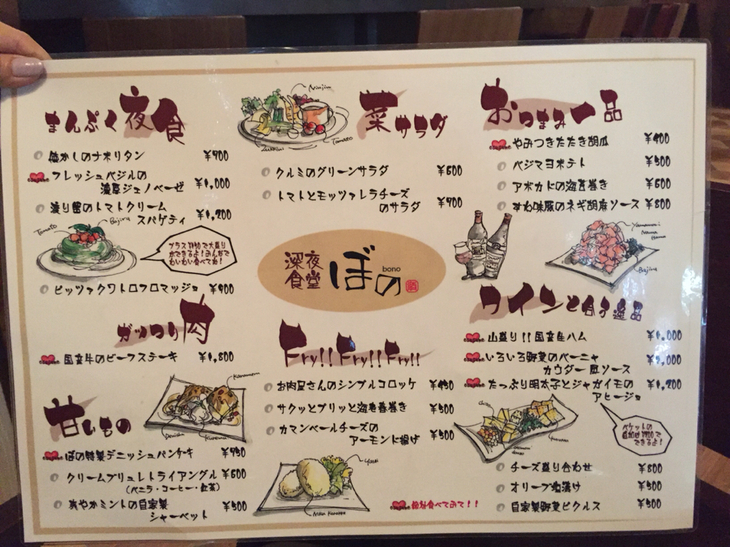 まんぷく夜食
懐かしのナポリタン ¥900
フレッシュバジルの
濃厚ジェノベーゼ ¥1,000
渡り蟹のトマトクリーム
スパゲティ ¥1,200
Tomato
ピッツァクワトロフロマッジョ ¥900
ガッツリ肉
国産牛のビーフステーキ ¥1,800
甘いもの
ぼの特製デニッシュパンケーキ ¥980
クリームブリュレトライアングル ¥600
(バニラ・コーヒー・紅茶)
爽やかミントの自家製
シャーベット ¥500
菜サラダ
Tomato
クルミのグリーンサラダ ¥600
トマトとモッツァレラチーズ
のサラダ ¥700
深夜食堂
ぼの
bono
Fry!! Fry!! Fry!!
お肉屋さんのシンプルコロッケ ¥450
サクッとプリッと海老春巻き ¥500
カマンベールチーズの
アーモンド揚げ ¥500
是非食べてみて!!
おつまみ一品
やみつきたたき胡瓜 ¥400
ベジマヨポテト ¥500
アボカドの海苔巻き ¥600
すわ味豚のネギ胡麻ソース ¥800
ワインと合う逸品
山盛り!!国産生ハム ¥1,000
いろいろ野菜のバーニャ
カウダー風ソース ¥1,000
たっぷり明太子とジャガイモの
アヒージョ ¥1,200
チーズ盛り合わせ ¥800
オリーブ塩漬け ¥500
自家製野菜ピクルス ¥500